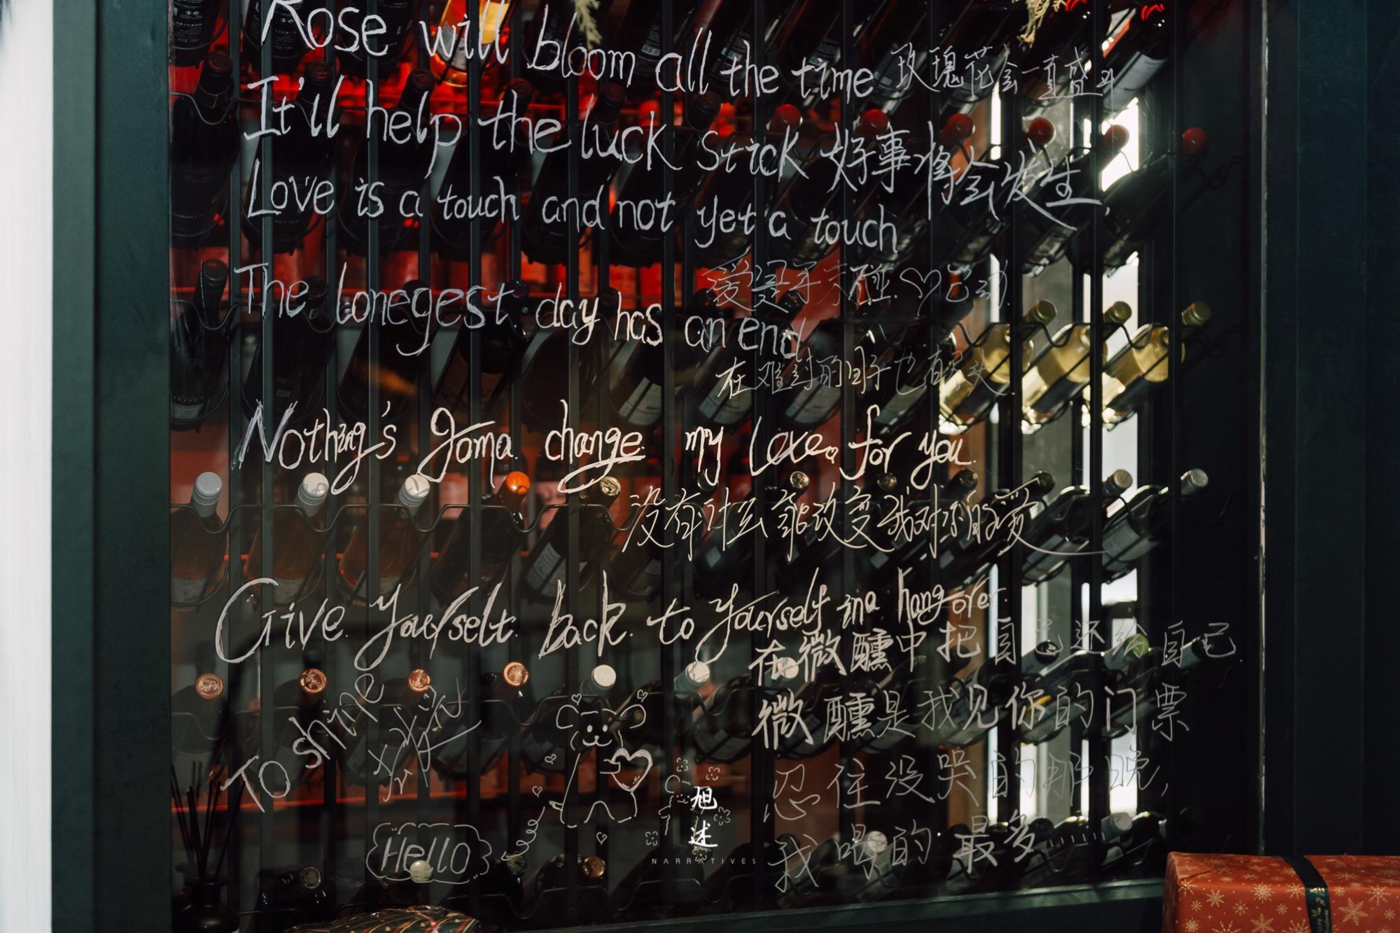 Rose will bloom all the time 玫瑰花会一直盛开
It'll help the luck stick 好事将会发生
Love is a touch and not yet a touch
爱是手未碰
The lonegest day has an end
在难过的日子也有
Nothing's gonna change my love for you
没有什么能改变我对你的爱
Give yourselt back to yourself in a hangover
在微醺中把自己还给自己
微醺是我见你的门票
忍住没哭的那晚,
我喝的最多
To shine
Hello
旭述
NARRATIVES